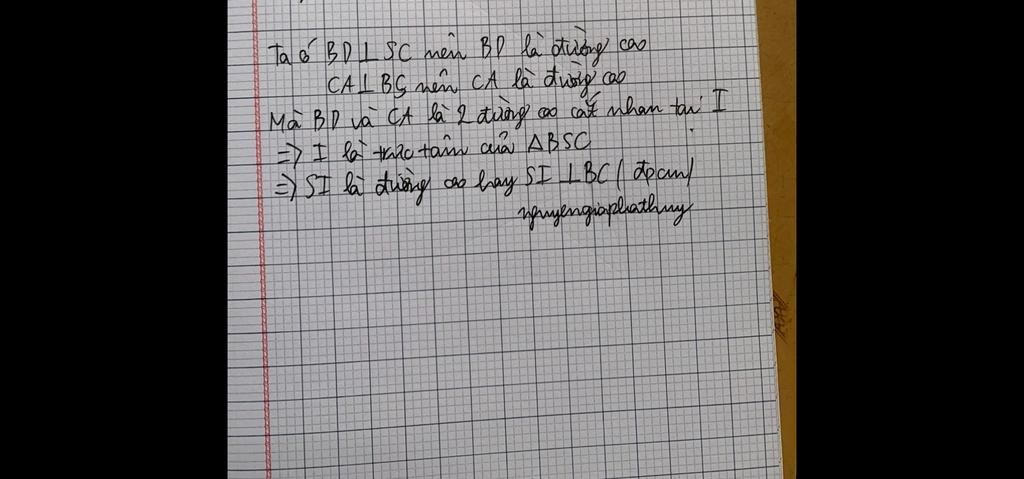 Ta có BD⊥SC nên BD là đường cao
CA⊥BS nên CA là đường cao
Mà BD và CA là 2 đường cao cắt nhau tại I
=> I là trực tâm của ΔBSC
=> SI là đường cao hay SI ⊥BC (đpcm)
nguyengiaphathuy